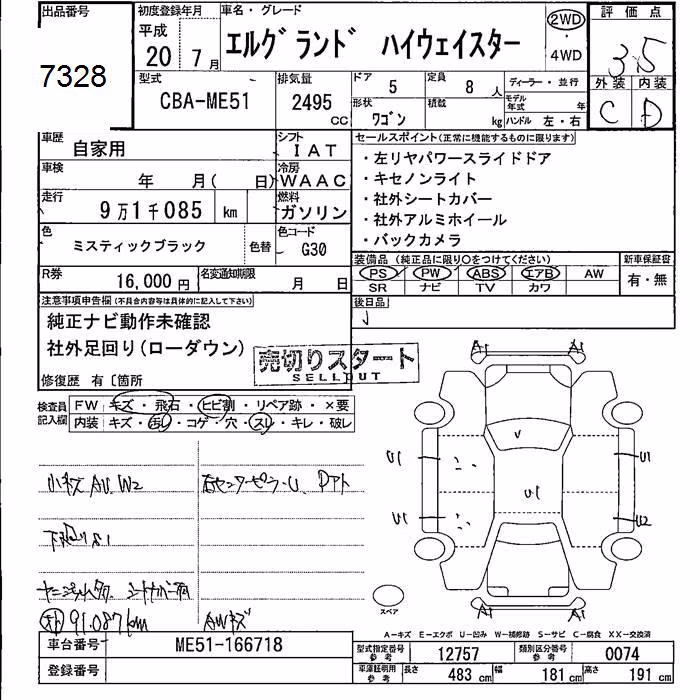 出品番号
7328
初度登録年月
平成
20 7月
車名・グレード
エルグランド ハイウェイスター
2WD
・
4WD
評価点
3.5
外装 内装
C D
型式
CBA-ME51
排気量
2495
CC
ドア
5
定員
8人
ディーラー・並行
形状
ワゴン
積載
kg
モデル年式
年
ハンドル 左・右
車歴
自家用
シフト
IAT
車検
年 月( 日)
冷房
WAAC
走行
9万1千085 km
燃料
ガソリン
色
ミスティックブラック
色替
色コード
G30
R券
16,000円
名変通知期限
月 日
セールスポイント(正常に機能するものに限ります)
・左リヤパワースライドドア
・キセノンライト
・社外シートカバー
・社外アルミホイール
・バックカメラ
装備品(純正品に限り○をつけてください)
PS PW ABS エアB AW
SR ナビ TV カワ
新車保証書
有・無
後日品
注意事項申告欄(不具合内容等は具体的に記入して下さい)
純正ナビ動作未確認
社外足回り(ローダウン)
売切りスタート
SELLOUT
修復歴 有〔箇所
検査員記入欄
FW キズ・飛石・ヒビ割・リペア跡・×要
内装 キズ・汚レ・コゲ・穴・スレ・キレ・破レ
小キズ AU W2
下廻り S1
91.087km
AWキズ
A1 A1
V
U1 U1
U1
U1 U2
A1 A1
スペア
A−キズ E−エクボ U−凹み W−補修跡 S−サビ C−腐食 XX−交換済
車台番号
ME51-166718
登録番号
型式指定番号
参考
12757
類別区分番号
参考
0074
車庫証明用
参考
長さ 483 cm 幅 181 cm 高さ 191 cm